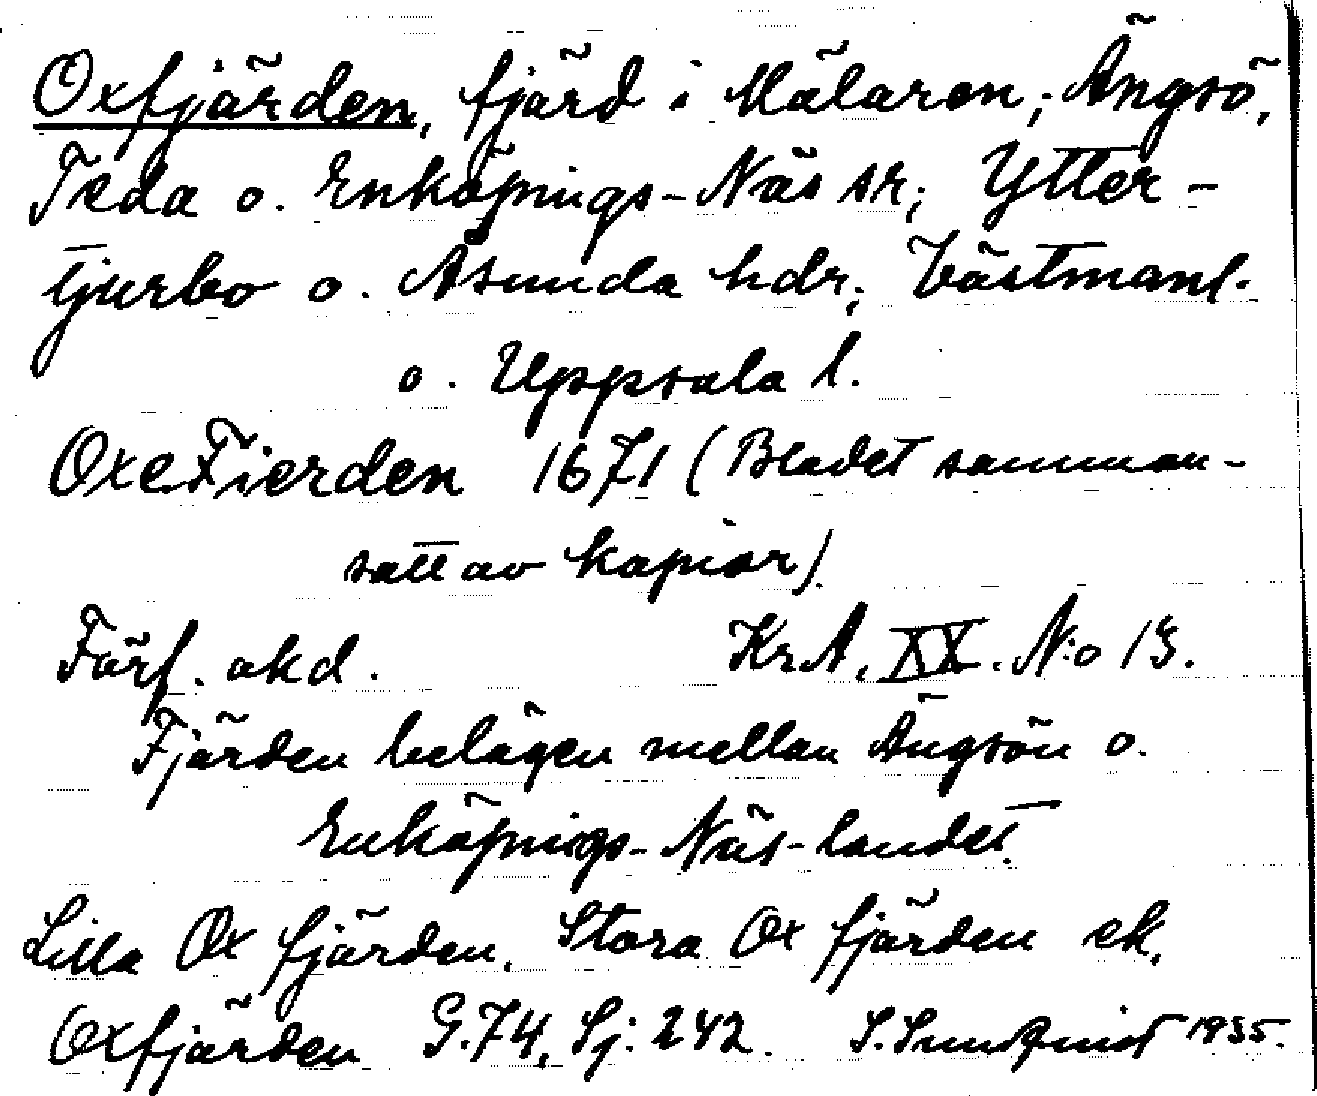 Oxfjärden, fjärd i Mälaren; Ängsö,
Teda o. Enköpings-Näs sr; Ytter-
tjurbo o. Åsunda hdr; Västmanl.
o. Uppsala l.
OxeFierden 1671 (Bladet samman-
satt av kopior).
Förf. okd. KrA. XX. N:o 13.
Fjärden belägen mellan Ängsön o.
Enköpings-Näs-landet.
Lilla Ox fjärden, Stora Ox fjärden ek.
Oxfjärden G.74, Sj: 242. S. Sundquist 1935.